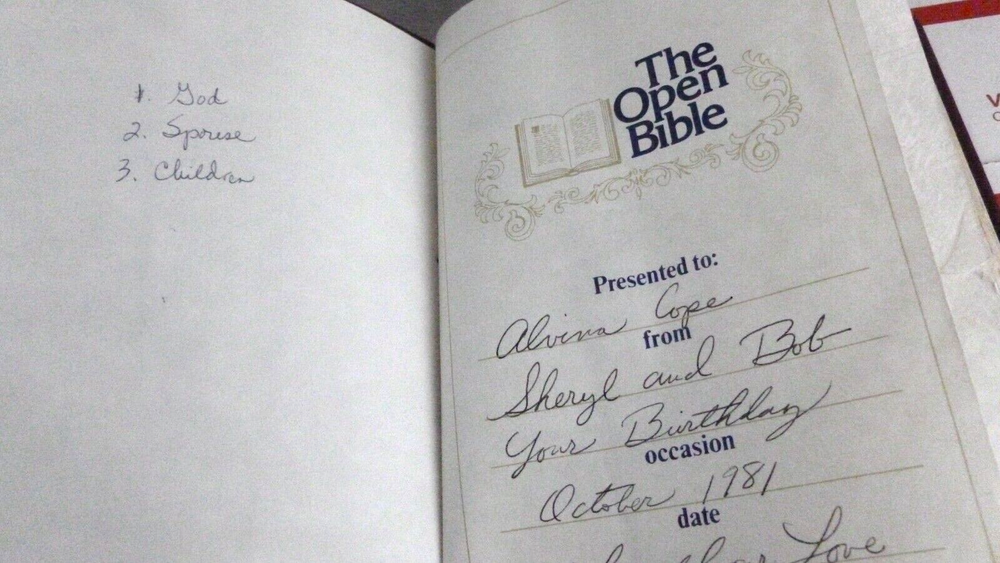 1. God
2. Spouse
3. Children
The
Open
Bible
Presented to:
Alvina Cope
from
Sheryl and Bob
Your Birthday
occasion
October 1981
date
Love